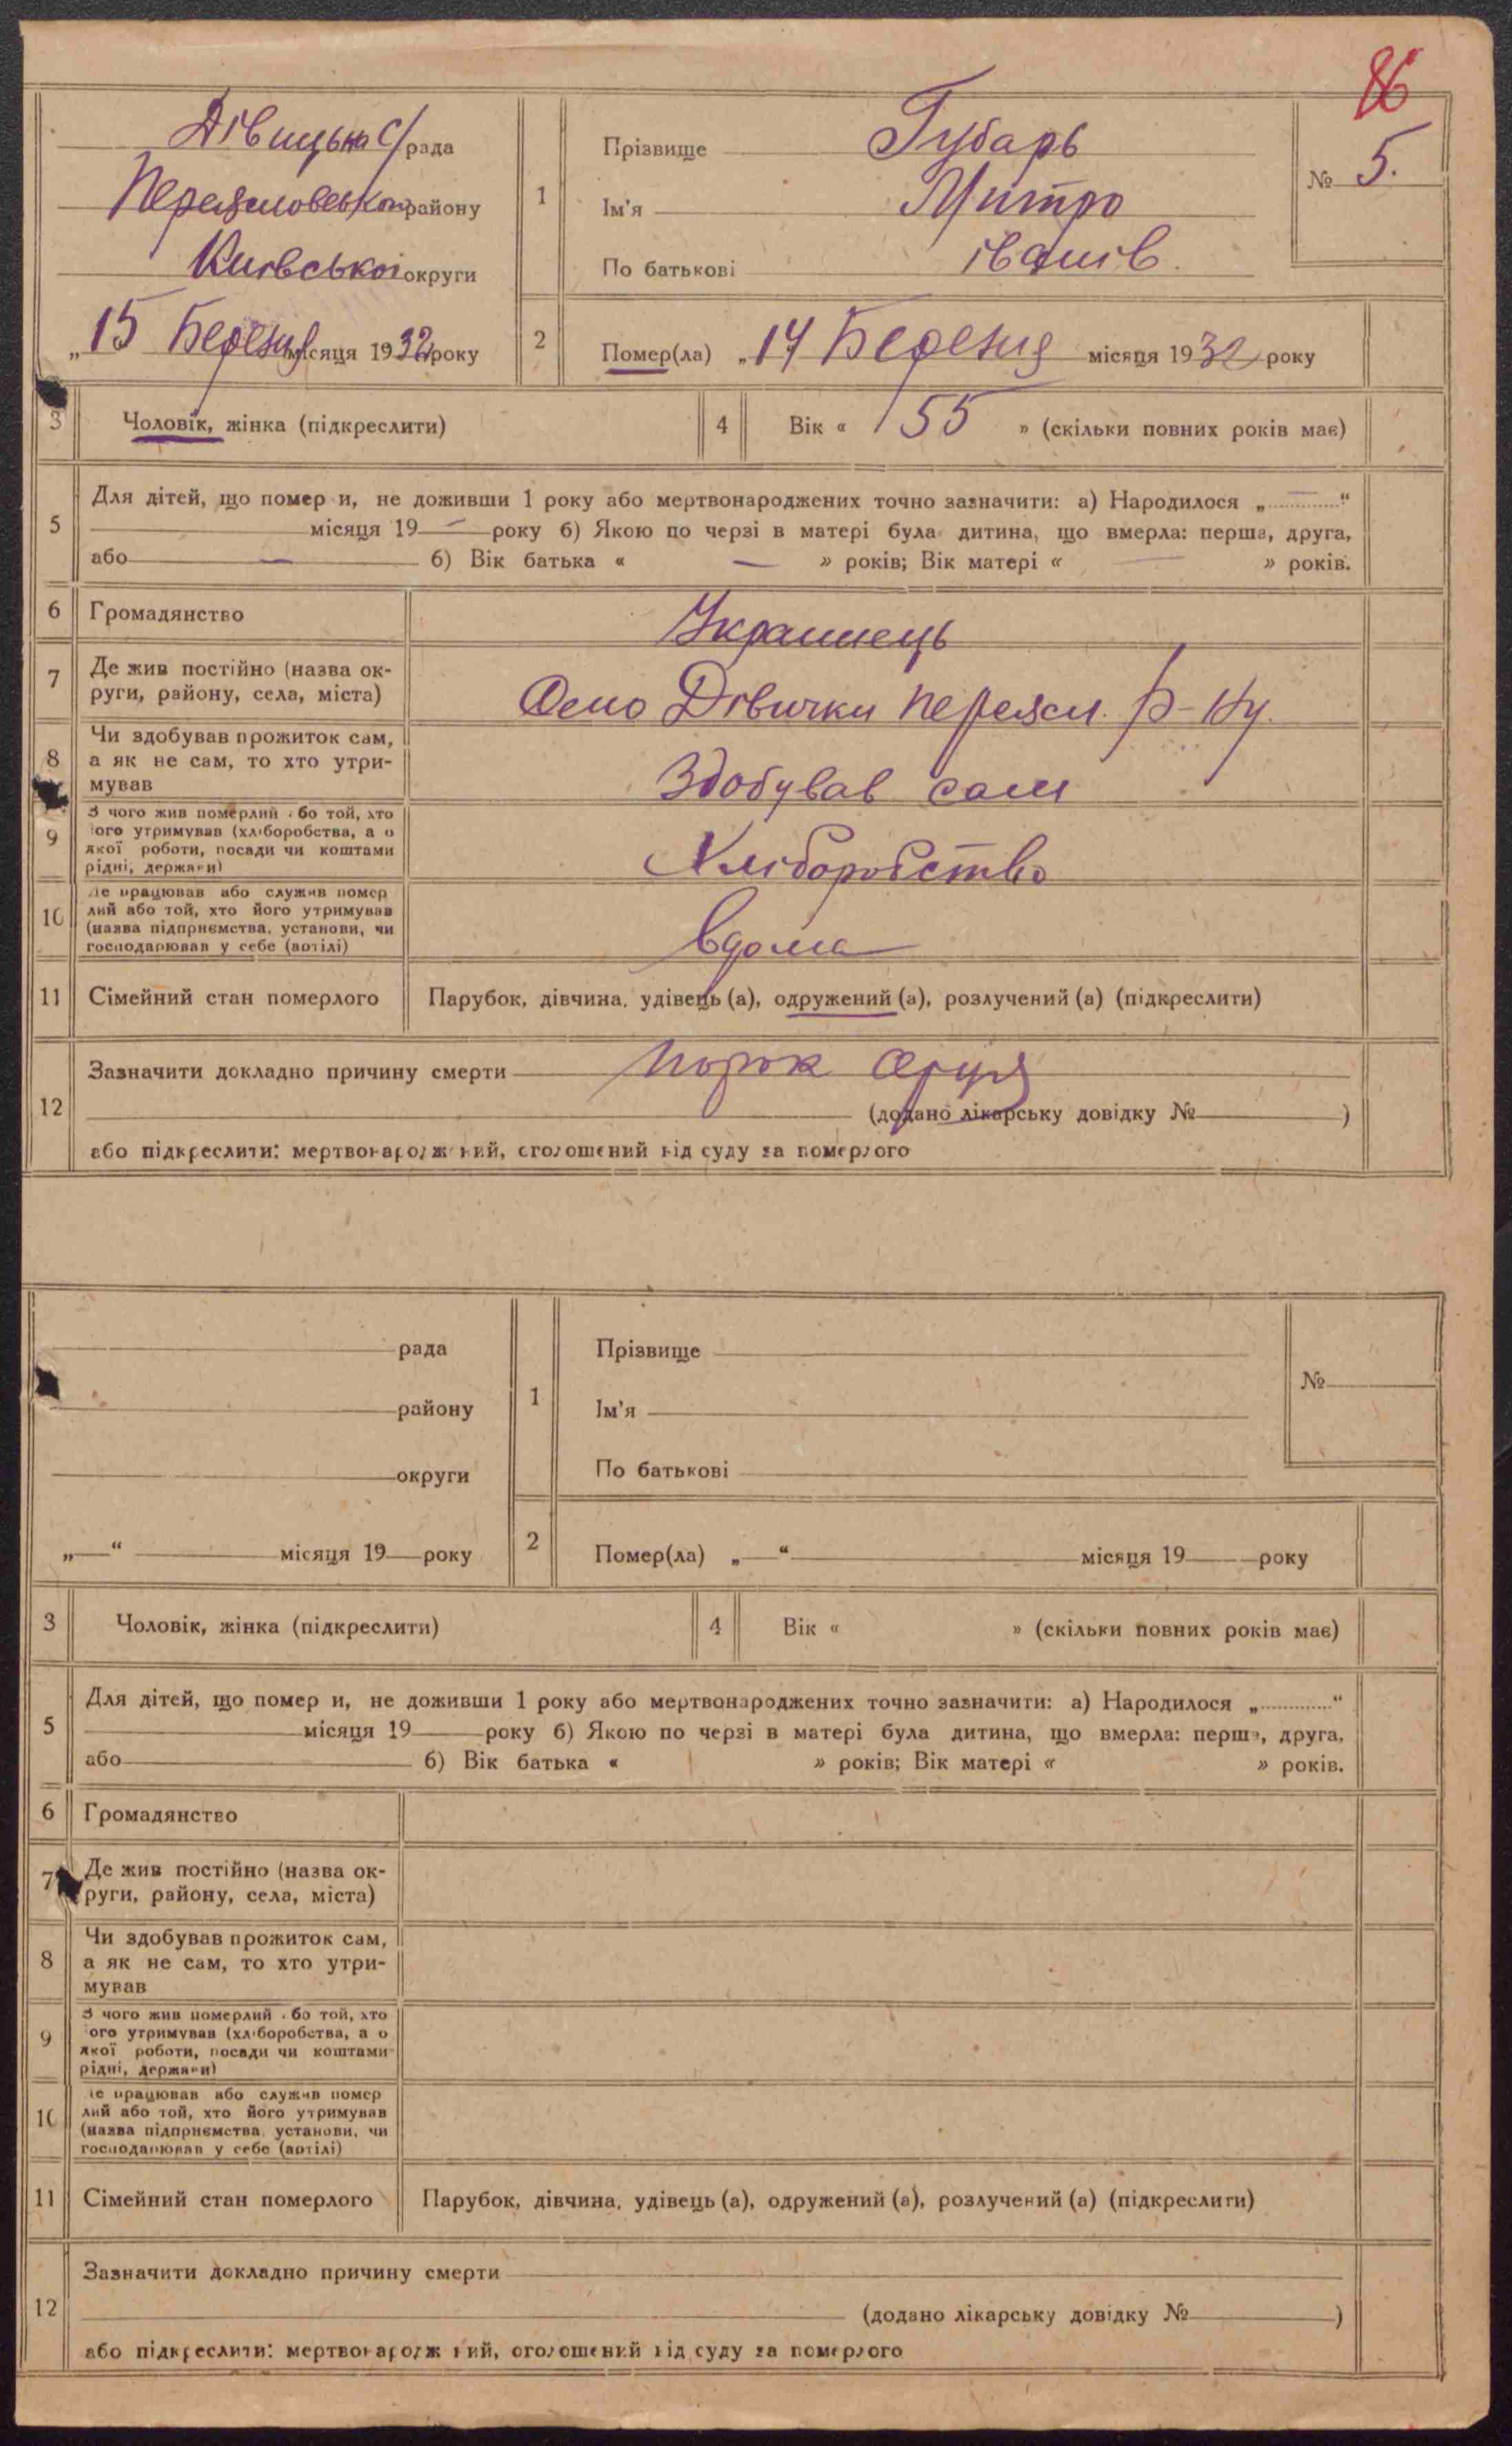 86
Дівицька с/рада
Переяславського району
Київської округи
„15 Березня місяця 1932 року
1
Прізвище Губарь
Ім'я Митро
По батькові іванів.
№ 5.
2
Помер(ла) „14 Березня місяця 1932 року
3
Чоловік, жінка (підкреслити)
4
Вік « 55 » (скільки повних років має)
5
Для дітей, що помер и, не доживши 1 року або мертвонароджених точно зазначити: а) Народилося „ “
місяця 19 — року б) Якою по черзі в матері була дитина, що вмерла: перша, друга,
або — б) Вік батька « — » років; Вік матері « — » років.
6
Громадянство
Украинець
7
Де жив постійно (назва ок-
руги, району, села, міста)
Село Дівички переясл. р-ну.
8
Чи здобував прожиток сам,
а як не сам, то хто утри-
мував
Здобував сам
9
З чого жив померлий бо той, хто
ого утримував (хліборобства, а о
якої роботи, посади чи коштами
рідні, держави)
Хліборобство
10
Де працював або служив помер
лий або той, хто його утримував
(назва підприємства, установи, чи
господарював у себе (артілі)
вдома
11
Сімейний стан померлого
Парубок, дівчина, удівець (а), одружений (а), розлучений (а) (підкреслити)
12
Зазначити докладно причину смерти порок серця
(додано лікарську довідку № )
або підкреслити: мертвонароджений, оголошений від суду за померлого
рада
району
округи
„ “ місяця 19 року
1
Прізвище
Ім'я
По батькові
№
2
Помер(ла) „ “ місяця 19 року
3
Чоловік, жінка (підкреслити)
4
Вік « » (скільки повних років має)
5
Для дітей, що помер и, не доживши 1 року або мертвонароджених точно зазначити: а) Народилося „ “
місяця 19 року б) Якою по черзі в матері була дитина, що вмерла: перша, друга,
або б) Вік батька « » років; Вік матері « » років.
6
Громадянство
7
Де жив постійно (назва ок-
руги, району, села, міста)
8
Чи здобував прожиток сам,
а як не сам, то хто утри-
мував
9
З чого жив померлий бо той, хто
ого утримував (хліборобства, а о
якої роботи, посади чи коштами
рідні, держави)
10
Де працював або служив помер
лий або той, хто його утримував
(назва підприємства, установи, чи
господарював у себе (артілі)
11
Сімейний стан померлого
Парубок, дівчина, удівець (а), одружений (а), розлучений (а) (підкреслити)
12
Зазначити докладно причину смерти
(додано лікарську довідку № )
або підкреслити: мертвонароджений, оголошений від суду за померлого